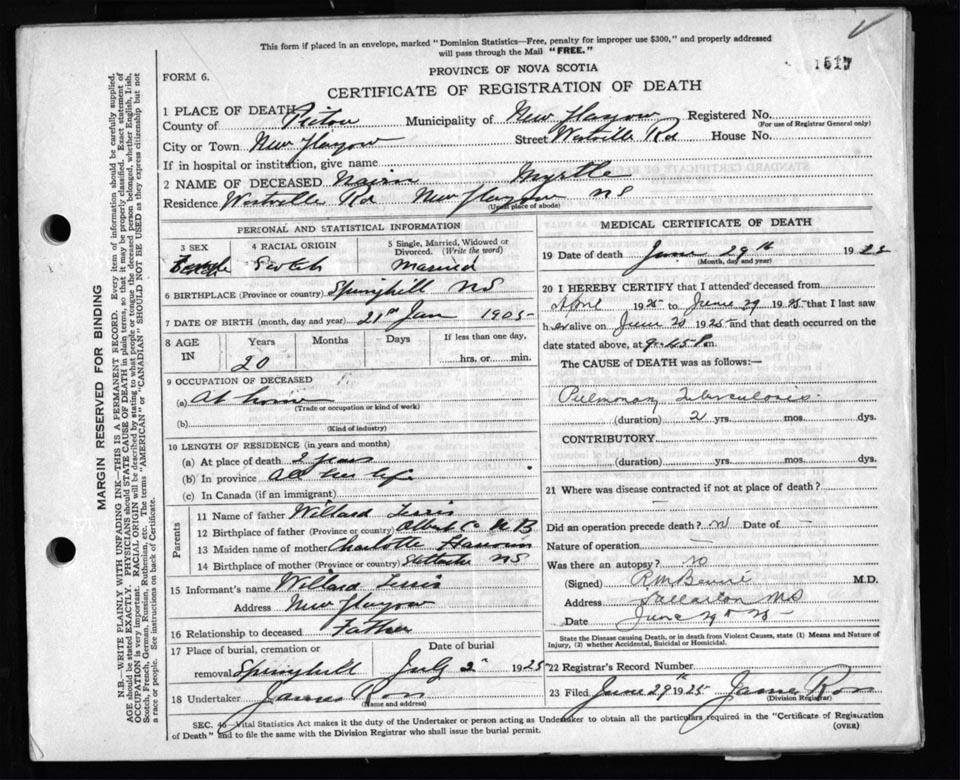 This form if placed in an envelope, marked "Dominion Statistics—Free, penalty for improper use $300," and properly addressed
will pass through the Mail "FREE."
1517
PROVINCE OF NOVA SCOTIA
FORM 6.
CERTIFICATE OF REGISTRATION OF DEATH
1 PLACE OF DEATH
County of Pictou Municipality of New Glasgow Registered No.
(For use of Registrar General only)
City or Town New Glasgow Street Westville Rd House No.
If in hospital or institution, give name
2 NAME OF DECEASED Nairn Myrtle
Residence Westville Rd New Glasgow NS
(Usual place of abode)
PERSONAL AND STATISTICAL INFORMATION
3 SEX 4 RACIAL ORIGIN 5 Single, Married, Widowed or Divorced. (Write the word)
Female Scotch Married
6 BIRTHPLACE (Province or country) Springhill NS
7 DATE OF BIRTH (month, day and year) 21st Jan 1905
8 AGE IN Years Months Days If less than one day,
20 hrs. or min.
9 OCCUPATION OF DECEASED
(a) At home
(Trade or occupation or kind of work)
(b)
(Kind of industry)
10 LENGTH OF RESIDENCE (in years and months)
(a) At place of death 2 years
(b) In province All her life
(c) In Canada (if an immigrant)
Parents
11 Name of father Willard
12 Birthplace of father (Province or country) Albert Co N B
13 Maiden name of mother Charlotte
14 Birthplace of mother (Province or country) NS
15 Informant's name Willard
Address New Glasgow
16 Relationship to deceased Father
17 Place of burial, cremation or Date of burial
removal Springhill July 2 1925
18 Undertaker James Ross
(Name and address)
MEDICAL CERTIFICATE OF DEATH
19 Date of death June 29th 1925
(Month, day and year)
20 I HEREBY CERTIFY that I attended deceased from
April 1925 to June 29 1925 that I last saw
her alive on June 20 1925 and that death occurred on
date stated above, at 9.45 Pm.
The CAUSE of DEATH was as follows:—
Pulmonary Tuberculosis
(duration) 2 yrs. mos. dys.
CONTRIBUTORY.
(duration) yrs. mos. dys.
21 Where was disease contracted if not at place of death?
Did an operation precede death? no Date of —
Nature of operation —
Was there an autopsy? no
(Signed) M.D.
Address Stellarton NS
Date June 29 25
State the Disease causing Death, or in death from Violent Causes, state (1) Means and Nature of
Injury, (2) whether Accidental, Suicidal or Homicidal.
22 Registrar's Record Number
23 Filed June 29th 1925 James Ross
(Division Registrar)
SEC. 46—Vital Statistics Act makes it the duty of the Undertaker or person acting as Undertaker to obtain all the particulars required in the "Certificate of Registration
of Death" and to file the same with the Division Registrar who shall issue the burial permit.
(OVER)
MARGIN RESERVED FOR BINDING
N.B.—WRITE PLAINLY WITH UNFADING INK—THIS IS A PERMANENT RECORD. Every item of information should be carefully supplied.
AGE should be stated EXACTLY. PHYSICIANS should STATE CAUSE OF DEATH in plain terms, so that it may be properly classified. Exact statement of
OCCUPATION is very important. RACIAL ORIGIN will be described by stating to what people or tongue the deceased person belonged, whether English, Irish,
Scotch, French, German, Russian, Ruthenian, etc. The terms "AMERICAN" or "CANADIAN" SHOULD NOT BE USED as they express citizenship but not
a race or people. See instructions on back of Certificate.